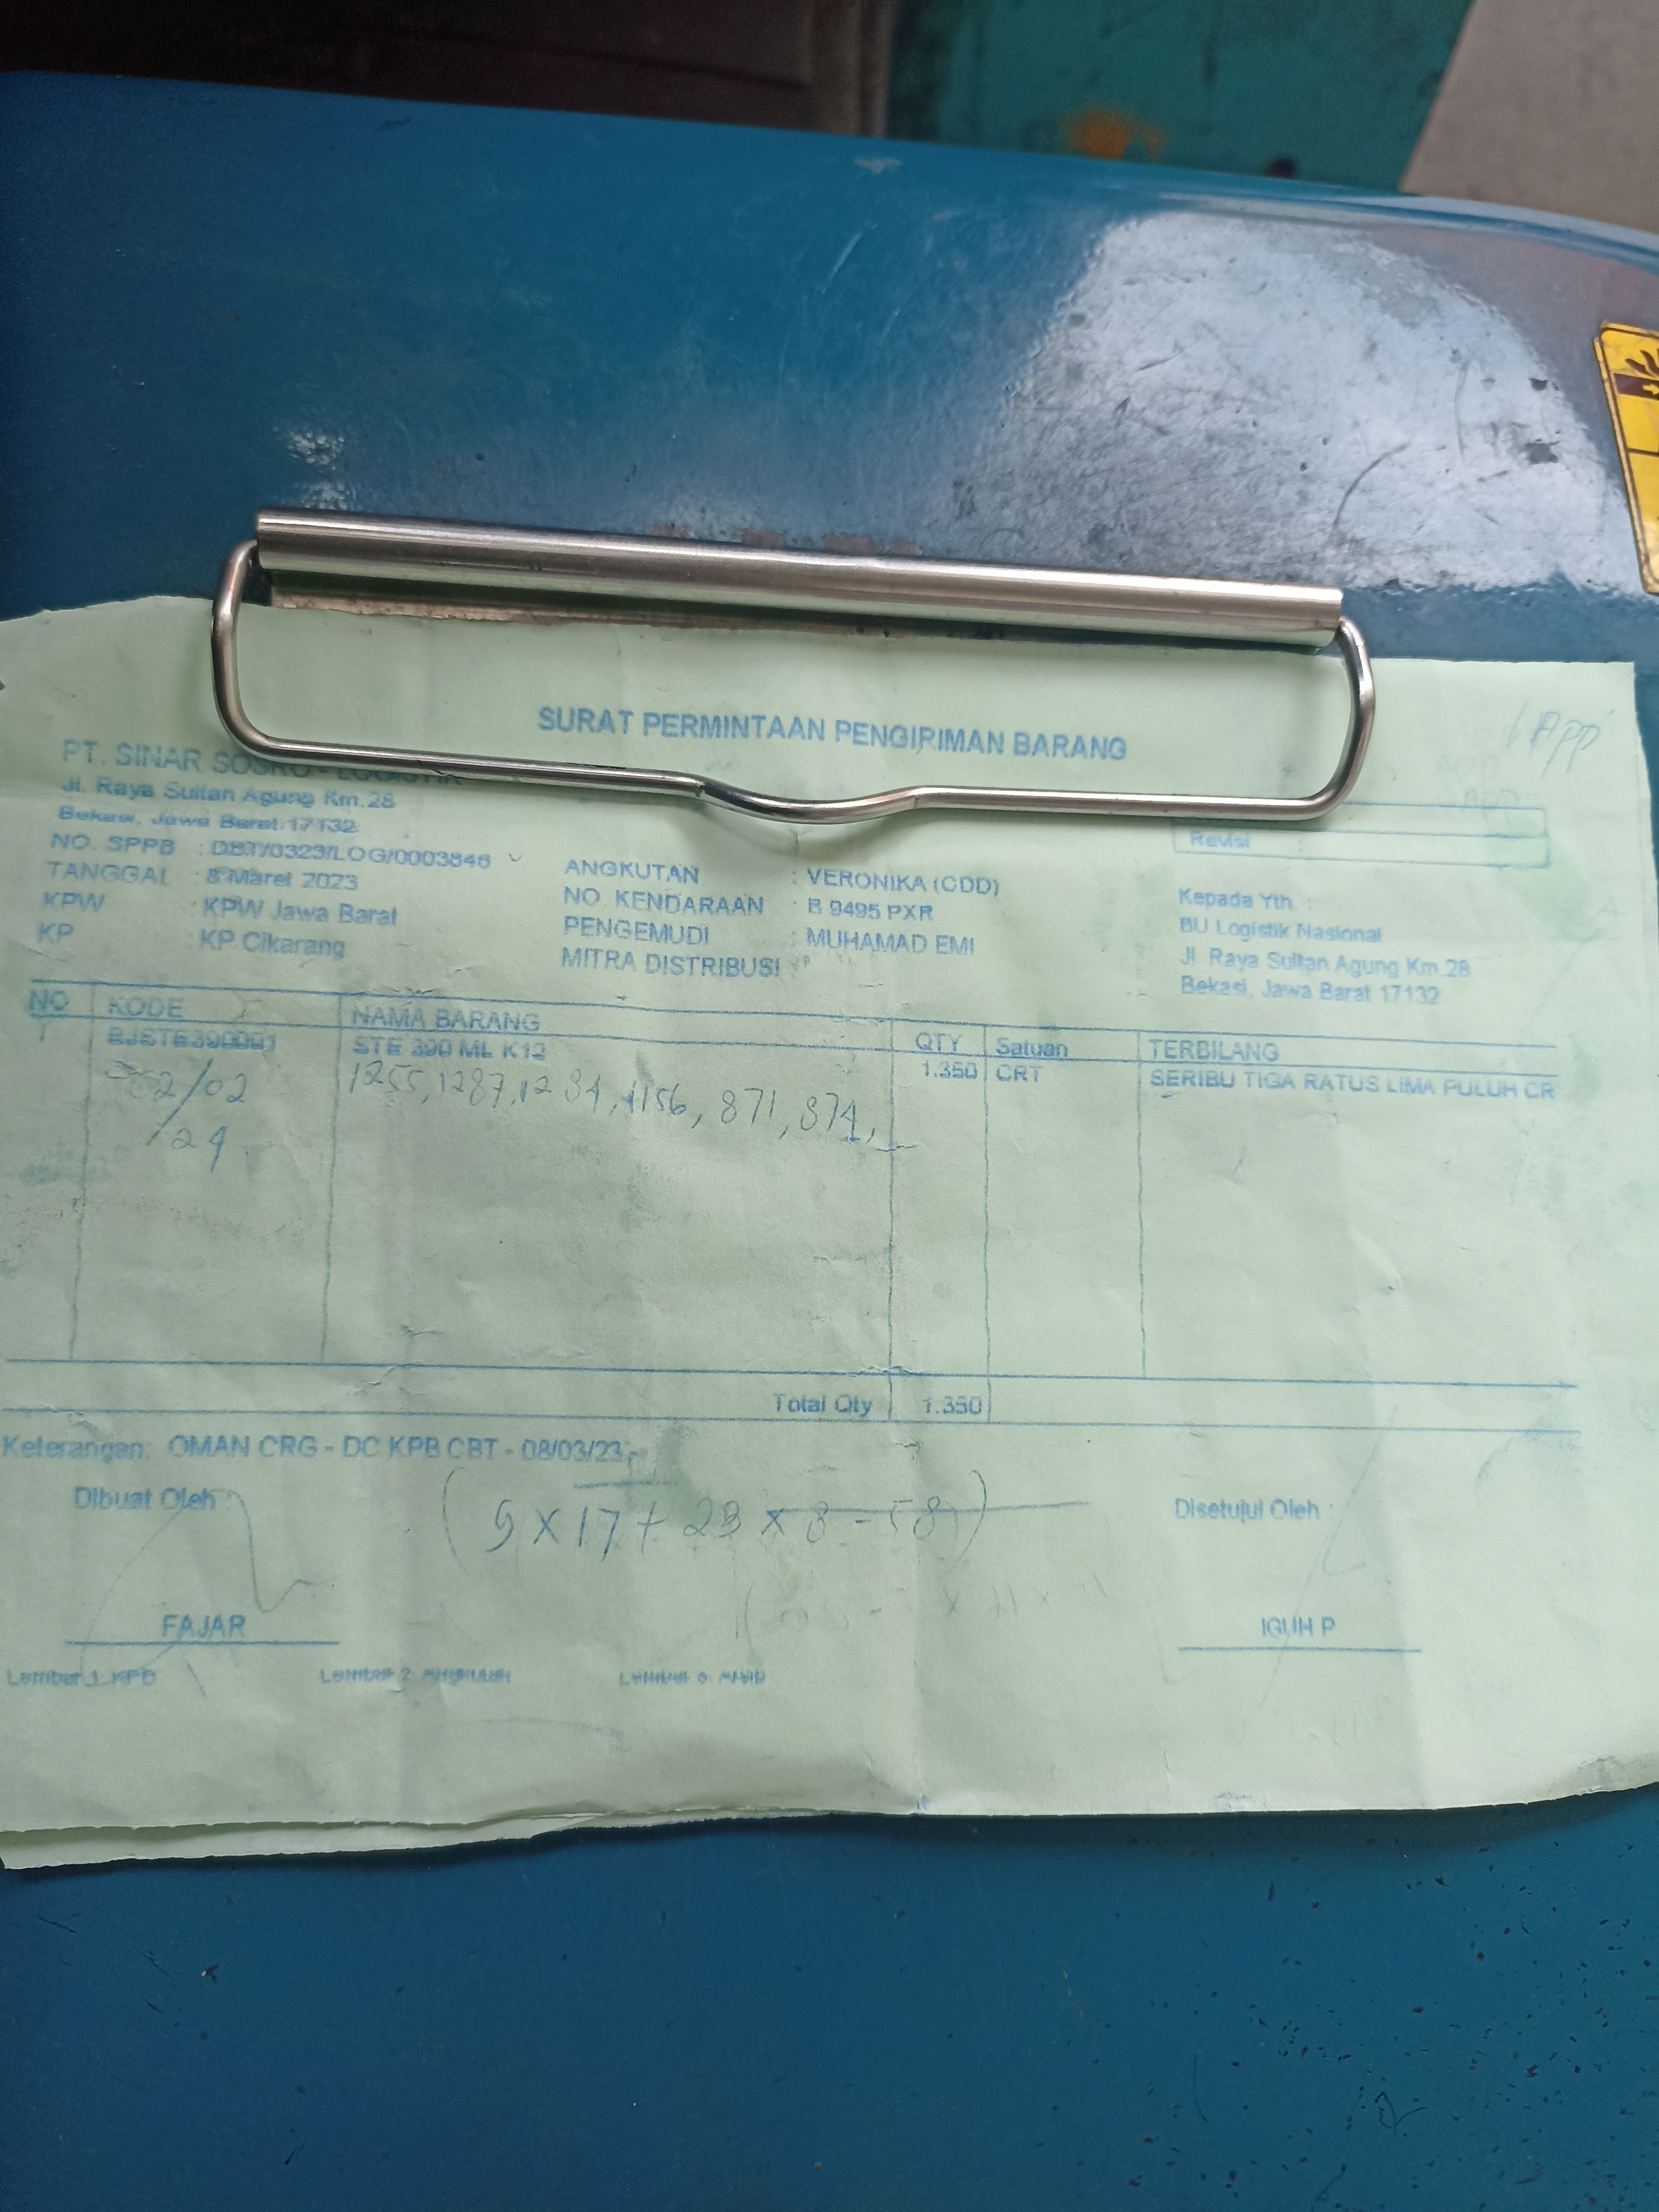 SURAT PERMINTAAN PENGIRIMAN BARANG
PT. SINAR SOSRO - LOGISTIK
Jl. Raya Sultan Agung Km.28
Bekasi, Jawa Barat 17132
NO. SPPB : DBT/0323/LOG/0003846
TANGGAL : 8 Maret 2023
KPW : KPW Jawa Barat
KP : KP Cikarang
ANGKUTAN : VERONIKA (CDD)
NO. KENDARAAN : B 9495 PXR
PENGEMUDI : MUHAMAD EMI
MITRA DISTRIBUSI :
Revisi
Kepada Yth :
BU Logistik Nasional
Jl. Raya Sultan Agung Km.28
Bekasi, Jawa Barat 17132
NO KODE NAMA BARANG QTY Satuan TERBILANG
1 BJSTE390001 STE 390 ML K12 1.350 CRT SERIBU TIGA RATUS LIMA PULUH CR
02/02 1255, 1287, 1284, 1156, 871, 874,
/24
Total Qty 1.350
Keterangan: OMAN CRG - DC KPB CBT - 08/03/23
Dibuat Oleh :
(9 x 17 + 23 x 8 - 58)
Disetujui Oleh :
FAJAR
IGUH P
Lembar 1: KPB Lembar 2: Angkutan Lembar 3: Arsip